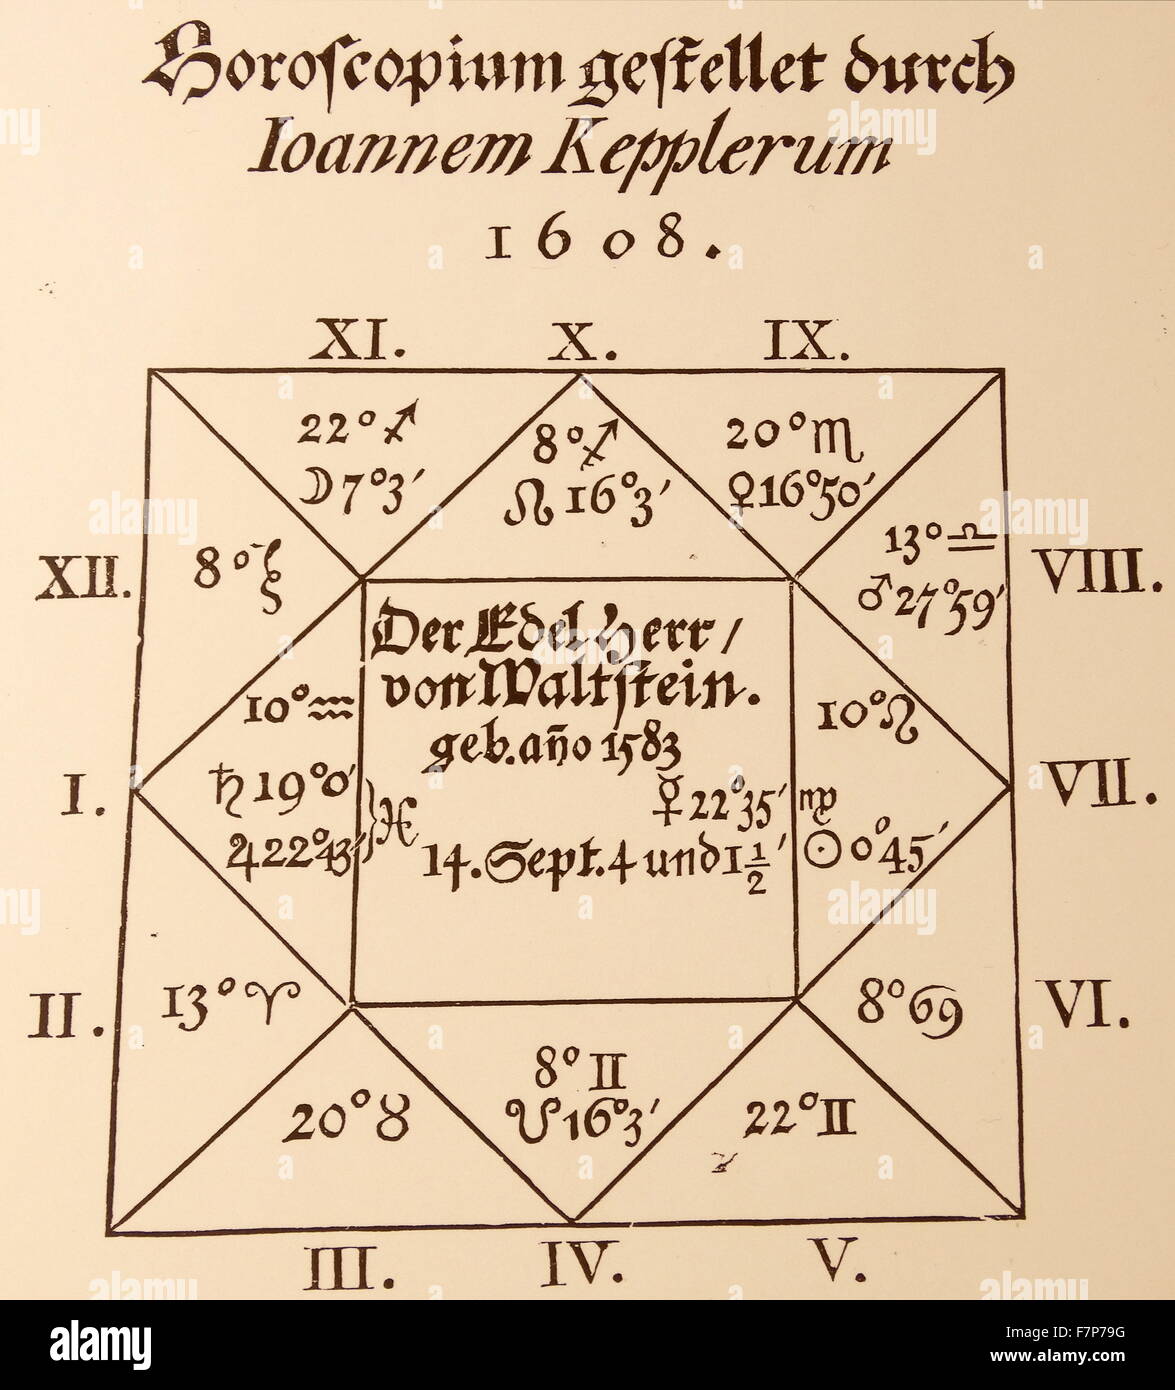 Horoſcopium geſtellet durch
Ioannem Kepplerum
1608.
XI. X. IX.
22° ♐
☽ 7° 3′
8° ♐
☊ 16° 3′
20° ♏
♀ 16° 50′
XII.
8° ♑
13° ♎
♂ 27° 59′
VIII.
Der Edel Herr/
von Waltſtein.
geb. año 1583
14. Sept. 4 und 1 1/2′
I.
10° ♒
♄ 19° 0′
♃ 22° 43′ } ♓
10° ♌
☿ 22° 35′ ♍
☉ 0° 45′
VII.
II.
13° ♈
20° ♉
8° ♊
☋ 16° 3′
22° ♊
8° ♋
VI.
III. IV. V.
alamy
a
alamy stock photo
F7P79G
www.alamy.com